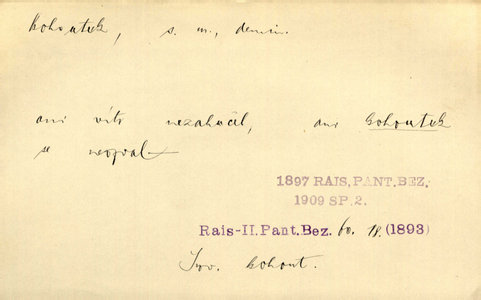 kohoutek, s. m., demin.
ani vítr nezahučel, ani kohoutek
se neozval
1897 RAIS, PANT. BEZ.
1909 SP. 2.
Rais-II. Pant. Bez. 60. 18. (1893)
Srv. kohout.